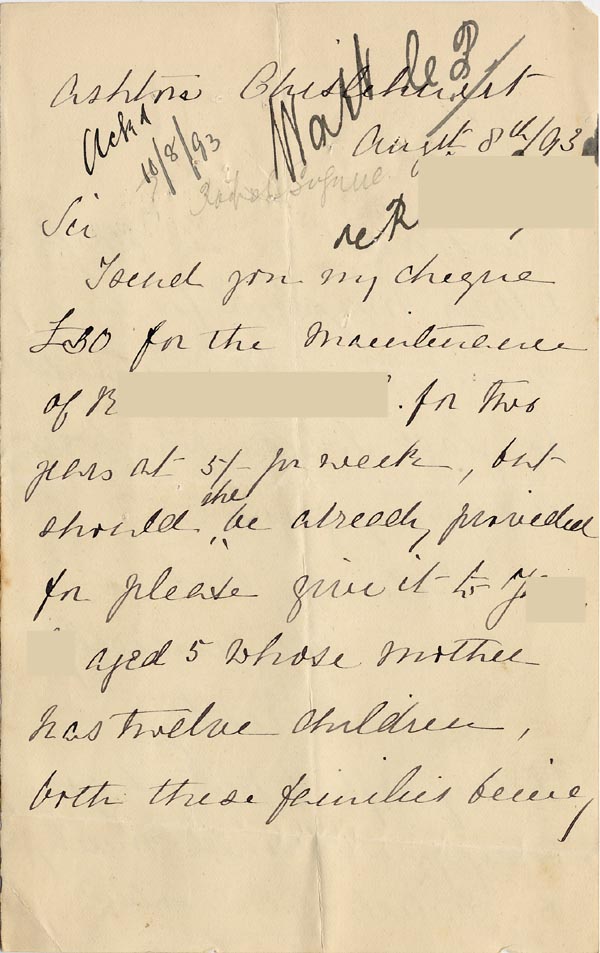 Wait de P
Ashton Chislehurst
Ackd
10/8/93
Augst 8th/93
Sir
re R
I send you my cheque
£30 for the maintenance
of R . for two
years at 5/- per week, but
should she be already provided
for please give it to J
aged 5 whose mother
has twelve children,
both these families being